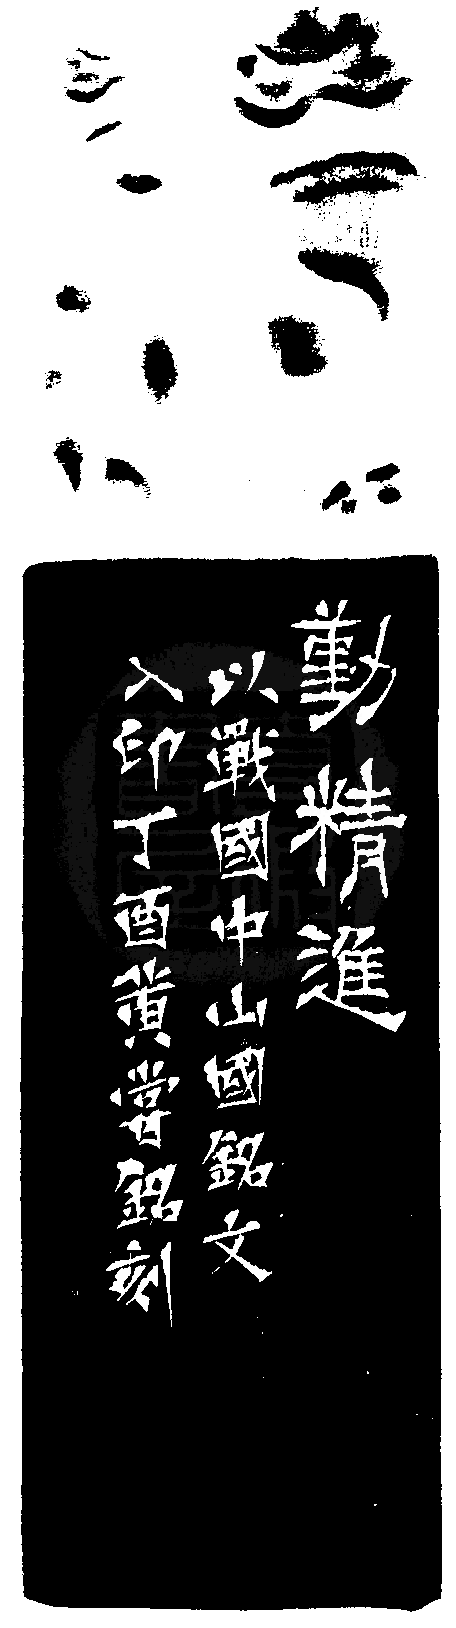 勤精進
以戰國中山國銘文
入印丁酉黄嘗銘刻